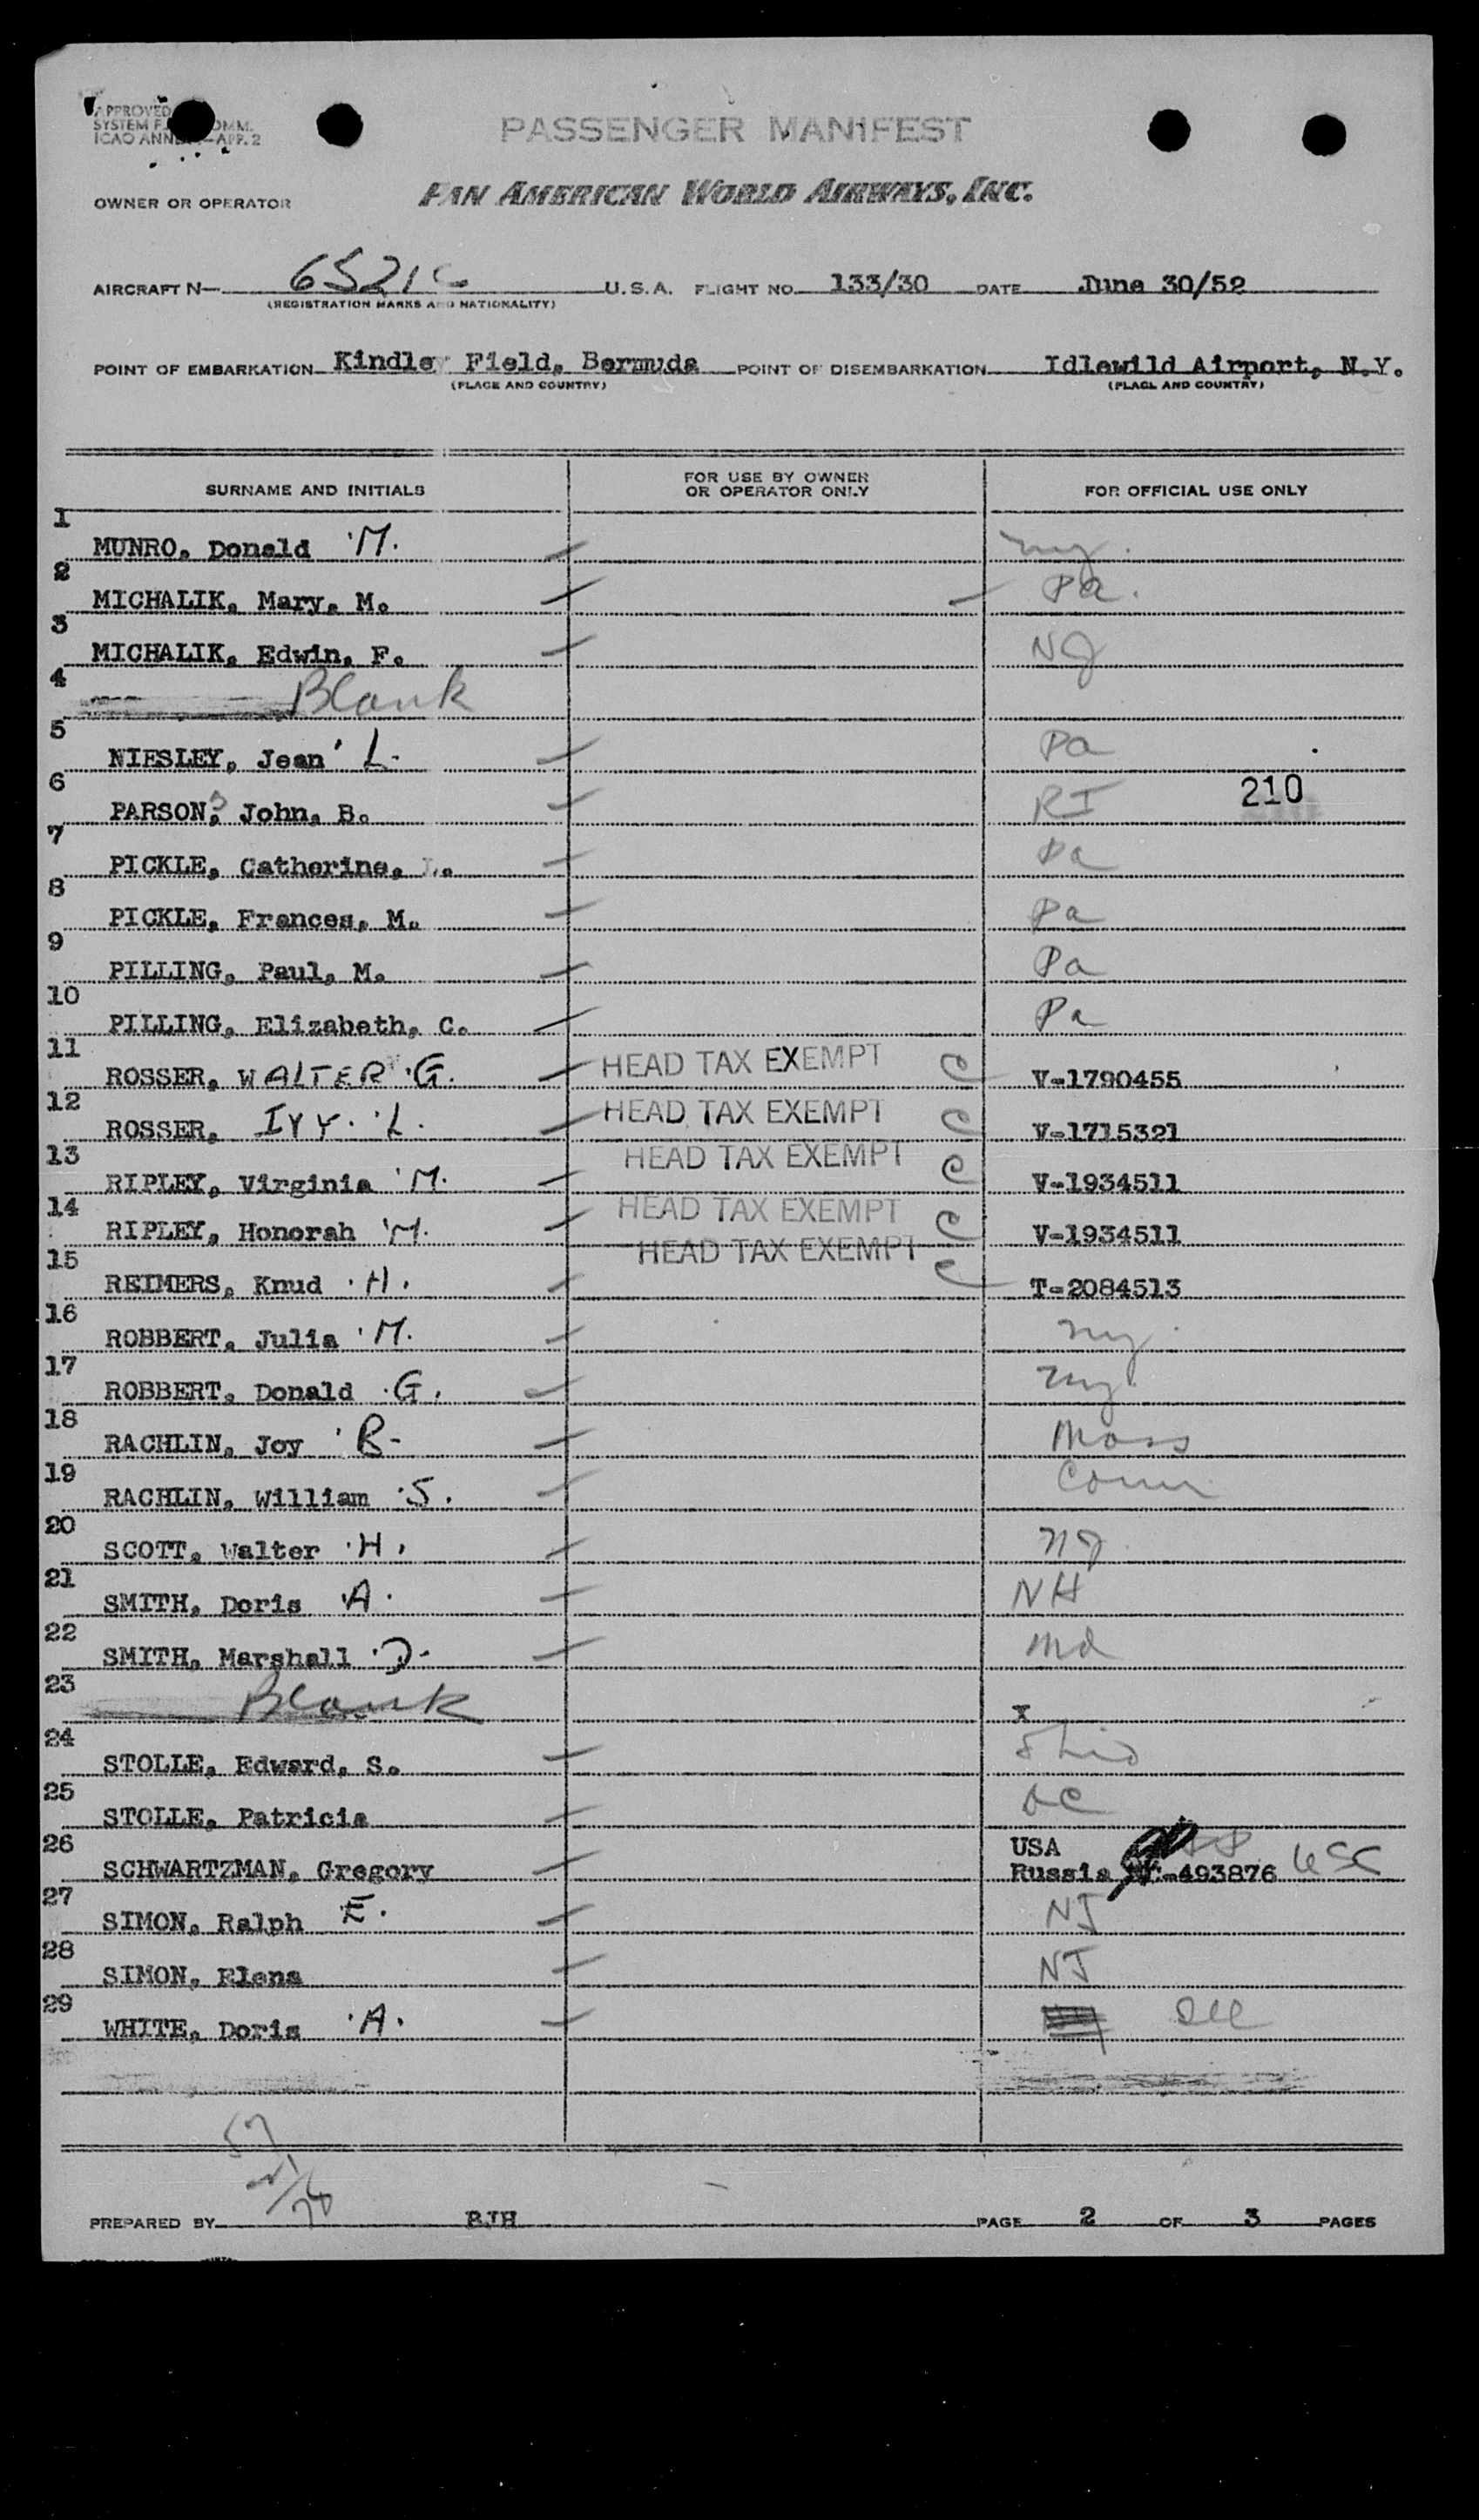 APPROVED
SYSTEM F COMM.
ICAO ANNEX — APP. 2
PASSENGER MANIFEST
OWNER OR OPERATOR PAN AMERICAN WORLD AIRWAYS, INC.
AIRCRAFT N— 6521C U.S.A. FLIGHT NO. 133/30 DATE June 30/52
(REGISTRATION MARKS AND NATIONALITY)
POINT OF EMBARKATION Kindley Field, Bermuda POINT OF DISEMBARKATION Idlewild Airport, N.Y.
(PLACE AND COUNTRY) (PLACE AND COUNTRY)
SURNAME AND INITIALS FOR USE BY OWNER OR OPERATOR ONLY FOR OFFICIAL USE ONLY
1 MUNRO, Donald M. ny.
2 MICHALIK, Mary, M. Pa.
3 MICHALIK, Edwin, F. NJ
4 Blank
5 NIESLEY, Jean L. Pa
6 PARSONS, John, B. RI 210
7 PICKLE, Catherine, L. Pa
8 PICKLE, Frances, M. Pa
9 PILLING, Paul, M. Pa
10 PILLING, Elizabeth, C. Pa
11 ROSSER, WALTER G. HEAD TAX EXEMPT C V-1790455
12 ROSSER, IVY. L. HEAD TAX EXEMPT C V-1715321
13 RIPLEY, Virginia M. HEAD TAX EXEMPT C V-1934511
14 RIPLEY, Honorah M. HEAD TAX EXEMPT C V-1934511
15 REIMERS, Knud H. HEAD TAX EXEMPT C T-2084513
16 ROBBERT, Julia M. ny.
17 ROBBERT, Donald G. ny
18 RACHLIN, Joy B- Mass
19 RACHLIN, William S. Conn
20 SCOTT, Walter H. NJ
21 SMITH, Doris A. NH
22 SMITH, Marshall D. Md
23 Blank X
24 STOLLE, Edward, S. Ohio
25 STOLLE, Patricia DC
26 SCHWARTZMAN, Gregory USA
Russia -493876 USC
27 SIMON, Ralph E. NJ
28 SIMON, Elena NJ
29 WHITE, Doris A. Ill
57
21/78
PREPARED BY BJH PAGE 2 OF 3 PAGES